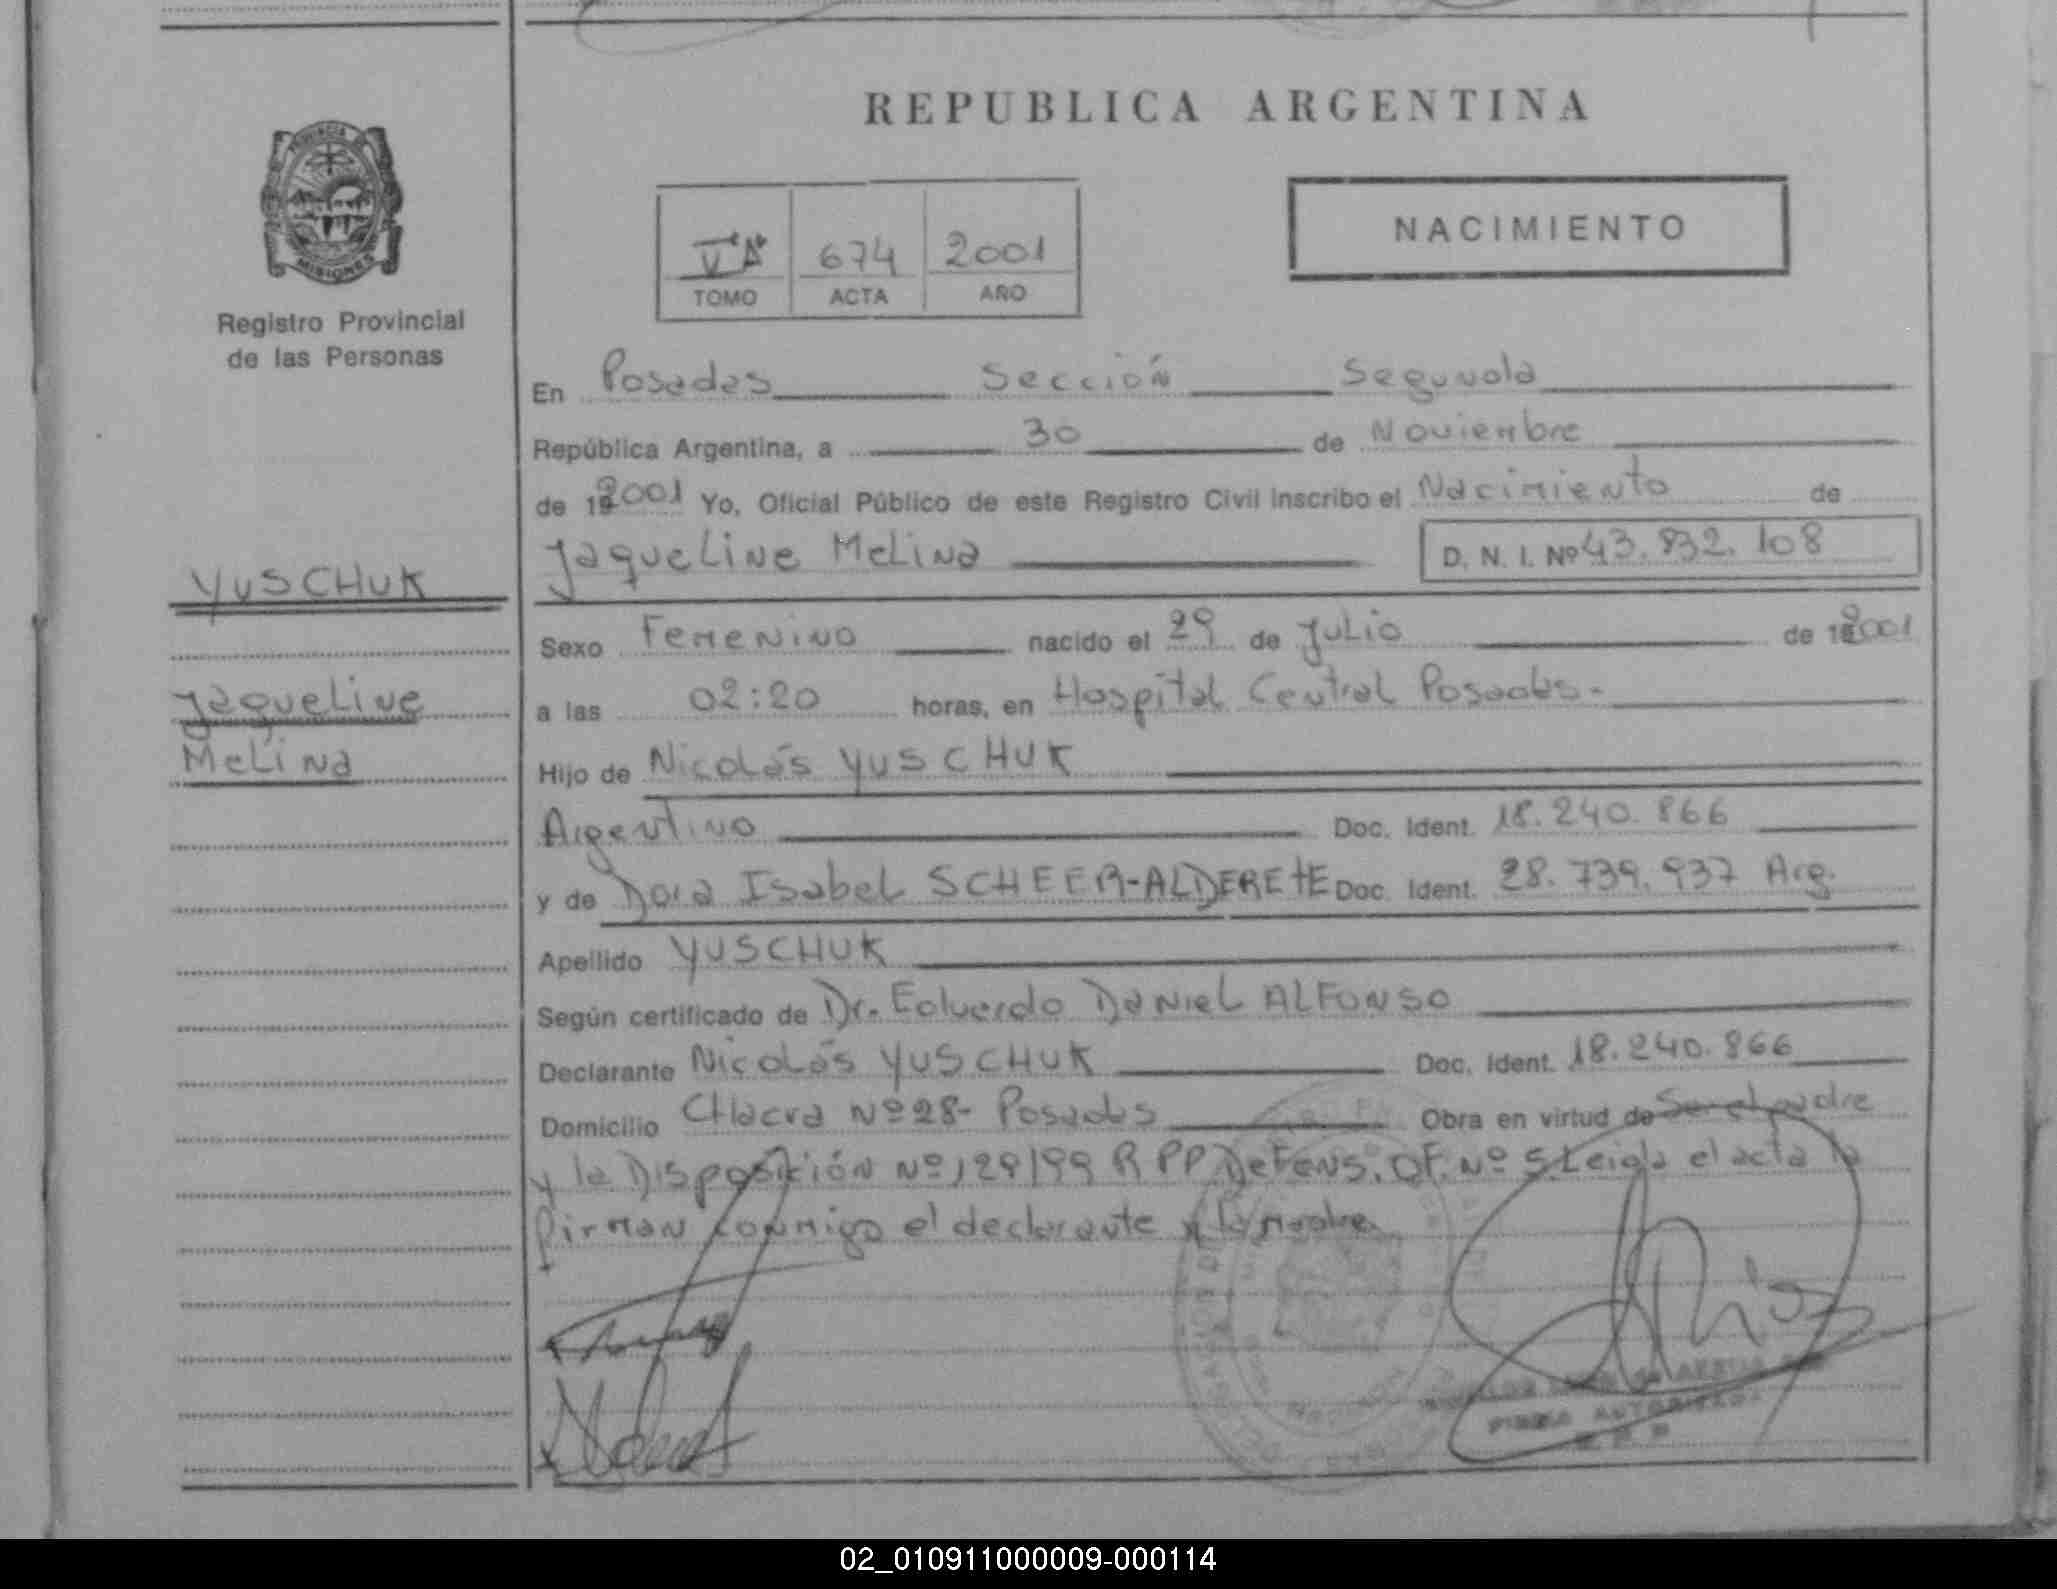 PROVINCIA DE
MISIONES
Registro Provincial
de las Personas
YUSCHUK
Jaqueline
Melina
REPUBLICA ARGENTINA
V "A" 674 2001
TOMO ACTA AÑO
NACIMIENTO
En Posadas Sección Segunda
República Argentina, a 30 de Noviembre
de 2001 Yo, Oficial Público de este Registro Civil inscribo el Nacimiento de
Jaqueline Melina D. N. I. Nº 43.832.108
Sexo Femenino nacido el 29 de Julio de 2001
a las 02:20 horas, en Hospital Central Posadas.-
Hijo de Nicolás YUSCHUK
Argentino Doc. Ident. 18.240.866
y de Dora Isabel SCHEER-ALDERETE Doc. Ident. 28.739.937 Arg.
Apellido YUSCHUK
Según certificado de Dr. Eduardo Daniel ALFONSO
Declarante Nicolás YUSCHUK Doc. Ident. 18.240.866
Domicilio CHacra Nº 28- Posadas Obra en virtud de Ser el padre
y la Disposición Nº 129/99 R PP Defens. Of. Nº 5. Leida el acta la
firman conmigo el declarante y la madre.
FIRMA AUTORIZADA
02_010911000009-000114